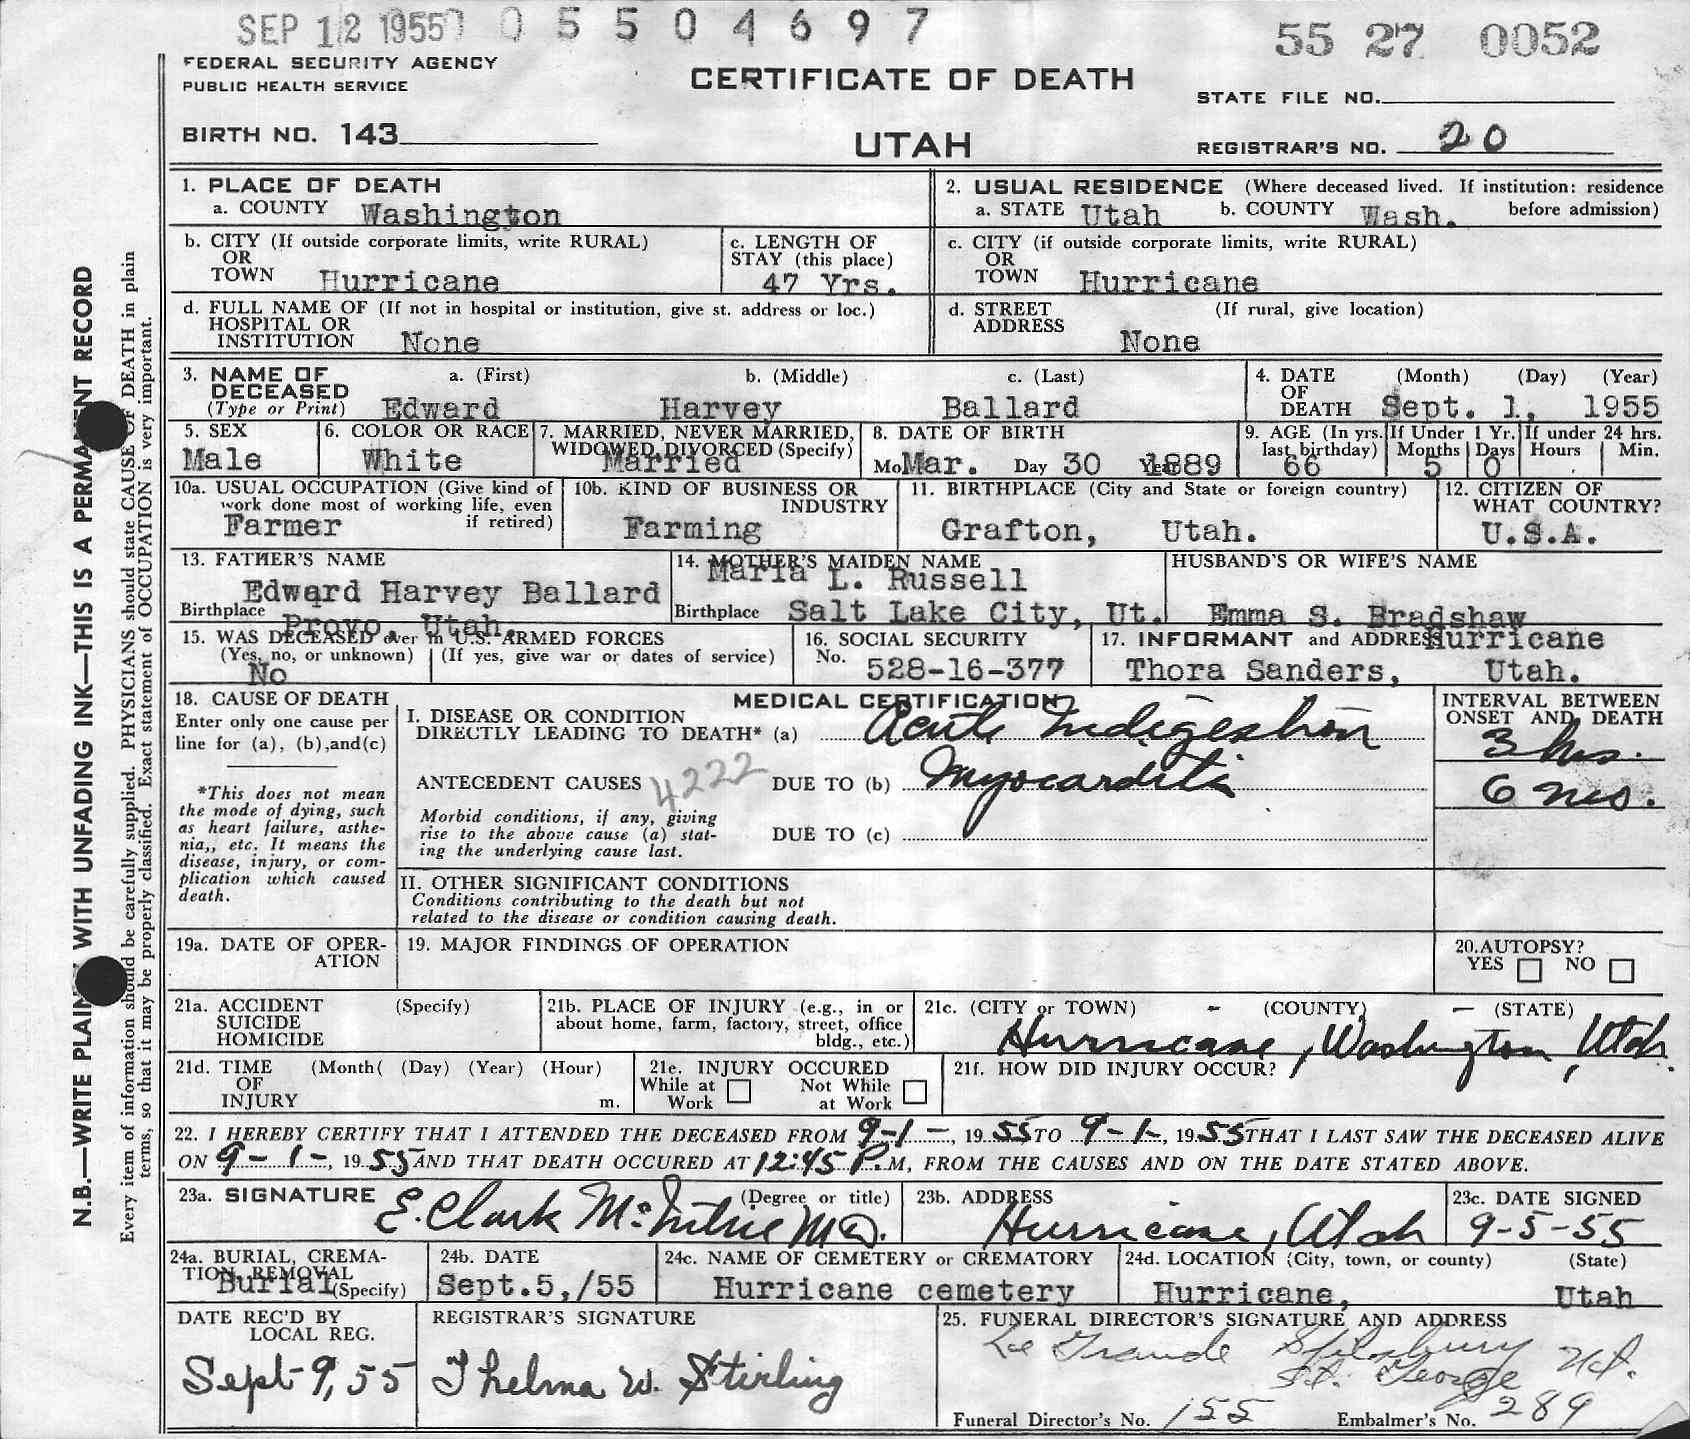 SEP 12 1955 0 5 5 0 4 6 9 7
55 27 0052
FEDERAL SECURITY AGENCY
PUBLIC HEALTH SERVICE
CERTIFICATE OF DEATH
STATE FILE NO.
BIRTH NO. 143
UTAH
REGISTRAR'S NO. 20
1. PLACE OF DEATH
a. COUNTY Washington
2. USUAL RESIDENCE (Where deceased lived. If institution: residence before admission)
a. STATE Utah b. COUNTY Wash.
b. CITY (If outside corporate limits, write RURAL)
OR
TOWN Hurricane
c. LENGTH OF
STAY (this place)
47 Yrs.
c. CITY (if outside corporate limits, write RURAL)
OR
TOWN Hurricane
d. FULL NAME OF (If not in hospital or institution, give st. address or loc.)
HOSPITAL OR
INSTITUTION None
d. STREET (If rural, give location)
ADDRESS
None
3. NAME OF a. (First) b. (Middle) c. (Last)
DECEASED
(Type or Print) Edward Harvey Ballard
4. DATE (Month) (Day) (Year)
OF
DEATH Sept. 1, 1955
5. SEX
Male
6. COLOR OR RACE
White
7. MARRIED, NEVER MARRIED,
WIDOWED, DIVORCED (Specify)
Married
8. DATE OF BIRTH
Mo. Mar. Day 30 Year 1889
9. AGE (In yrs.
last birthday)
66
If Under 1 Yr.
Months Days
5 0
If under 24 hrs.
Hours Min.
10a. USUAL OCCUPATION (Give kind of
work done most of working life, even
if retired)
Farmer
10b. KIND OF BUSINESS OR
INDUSTRY
Farming
11. BIRTHPLACE (City and State or foreign country)
Grafton, Utah.
12. CITIZEN OF
WHAT COUNTRY?
U.S.A.
13. FATHER'S NAME
Edward Harvey Ballard
Birthplace
Provo, Utah.
14. MOTHER'S MAIDEN NAME
Maria L. Russell
Birthplace Salt Lake City, Ut.
HUSBAND'S OR WIFE'S NAME
Emma S. Bradshaw
15. WAS DECEASED ever in U.S. ARMED FORCES
(Yes, no, or unknown) (If yes, give war or dates of service)
No
16. SOCIAL SECURITY
No. 528-16-377
17. INFORMANT and ADDRESS Hurricane
Thora Sanders, Utah.
18. CAUSE OF DEATH
Enter only one cause per
line for (a), (b),and(c)
*This does not mean
the mode of dying, such
as heart failure, asthe-
nia,, etc. It means the
disease, injury, or com-
plication which caused
death.
MEDICAL CERTIFICATION
I. DISEASE OR CONDITION
DIRECTLY LEADING TO DEATH* (a) Acute Indigestion
ANTECEDENT CAUSES 4222 DUE TO (b) Myocarditis
Morbid conditions, if any, giving
rise to the above cause (a) stat-
ing the underlying cause last.
DUE TO (c)
INTERVAL BETWEEN
ONSET AND DEATH
3 hrs.
6 mos.
II. OTHER SIGNIFICANT CONDITIONS
Conditions contributing to the death but not
related to the disease or condition causing death.
19a. DATE OF OPER-
ATION
19. MAJOR FINDINGS OF OPERATION
20.AUTOPSY?
YES NO
21a. ACCIDENT (Specify)
SUICIDE
HOMICIDE
21b. PLACE OF INJURY (e.g., in or
about home, farm, factory, street, office
bldg., etc.)
21c. (CITY or TOWN) - (COUNTY) - (STATE)
Hurricane, Washington, Utah.
21d. TIME (Month( (Day) (Year) (Hour)
OF
INJURY m.
21e. INJURY OCCURED
While at Not While
Work at Work
21f. HOW DID INJURY OCCUR?
22. I HEREBY CERTIFY THAT I ATTENDED THE DECEASED FROM 9-1-, 1955 TO 9-1-, 1955 THAT I LAST SAW THE DECEASED ALIVE
ON 9-1-, 1955, AND THAT DEATH OCCURED AT 12:45 P.M, FROM THE CAUSES AND ON THE DATE STATED ABOVE.
23a. SIGNATURE (Degree or title)
E. Clark McIntire M.D.
23b. ADDRESS
Hurricane, Utah
23c. DATE SIGNED
9-5-55
24a. BURIAL, CREMA-
TION, REMOVAL
Burial (Specify)
24b. DATE
Sept.5,/55
24c. NAME OF CEMETERY or CREMATORY
Hurricane cemetery
24d. LOCATION (City, town, or county) (State)
Hurricane, Utah
DATE REC'D BY
LOCAL REG.
Sept-9, 55
REGISTRAR'S SIGNATURE
Thelma W. Stirling
25. FUNERAL DIRECTOR'S SIGNATURE AND ADDRESS
Le Grande Spilsbury
St. George Ut.
Funeral Director's No. 155 Embalmer's No. 289
N.B.—WRITE PLAINLY WITH UNFADING INK—THIS IS A PERMANENT RECORD
Every item of information should be carefully supplied. PHYSICIANS should state CAUSE OF DEATH in plain
terms, so that it may be properly classified. Exact statement of OCCUPATION is very important.